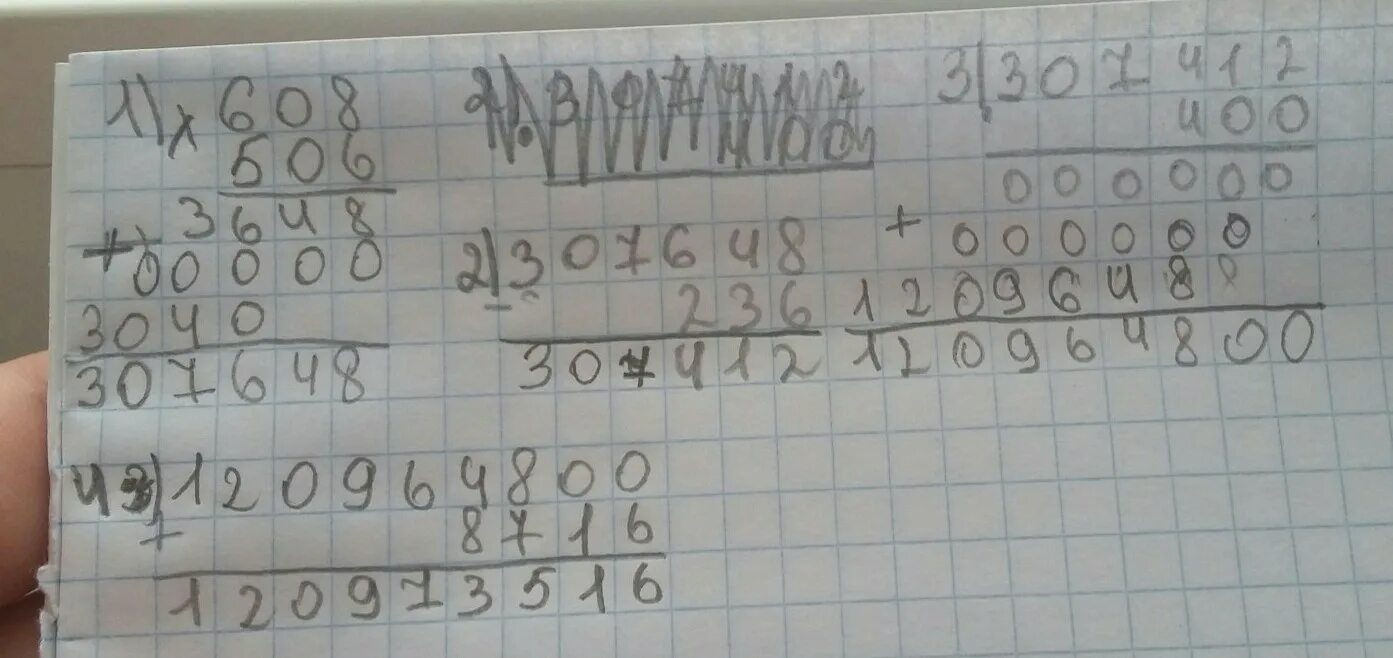 1) x 608
506
3648
+ 00000
3040
307648
2) 307648
- 236
307412
3) 307412
400
000000
+ 000000
1209648
120964800
4) 120964800
+ 8716
120973516